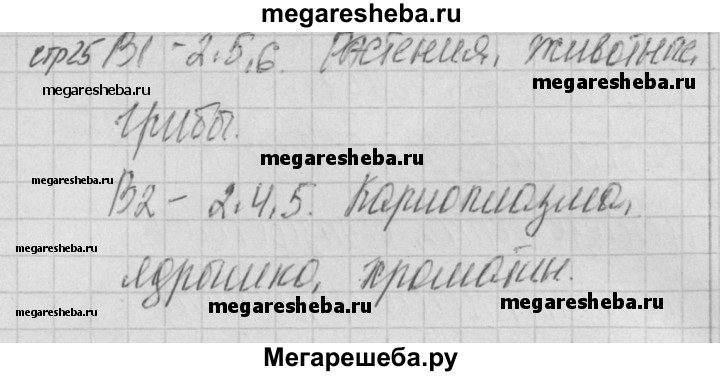 megaresheba.ru
стр25 В1 - 2.5.6. Растения, животные,
megaresheba.ru megaresheba.ru
грибы.
megaresheba.ru
megaresheba.ru
В2 - 2.4.5. Кариоплазма,
megaresheba.ru
megaresheba.ru
ядрышко, хроматин.
megaresheba.ru megaresheba.ru
megaresheba.ru
Мегарешеба.ру